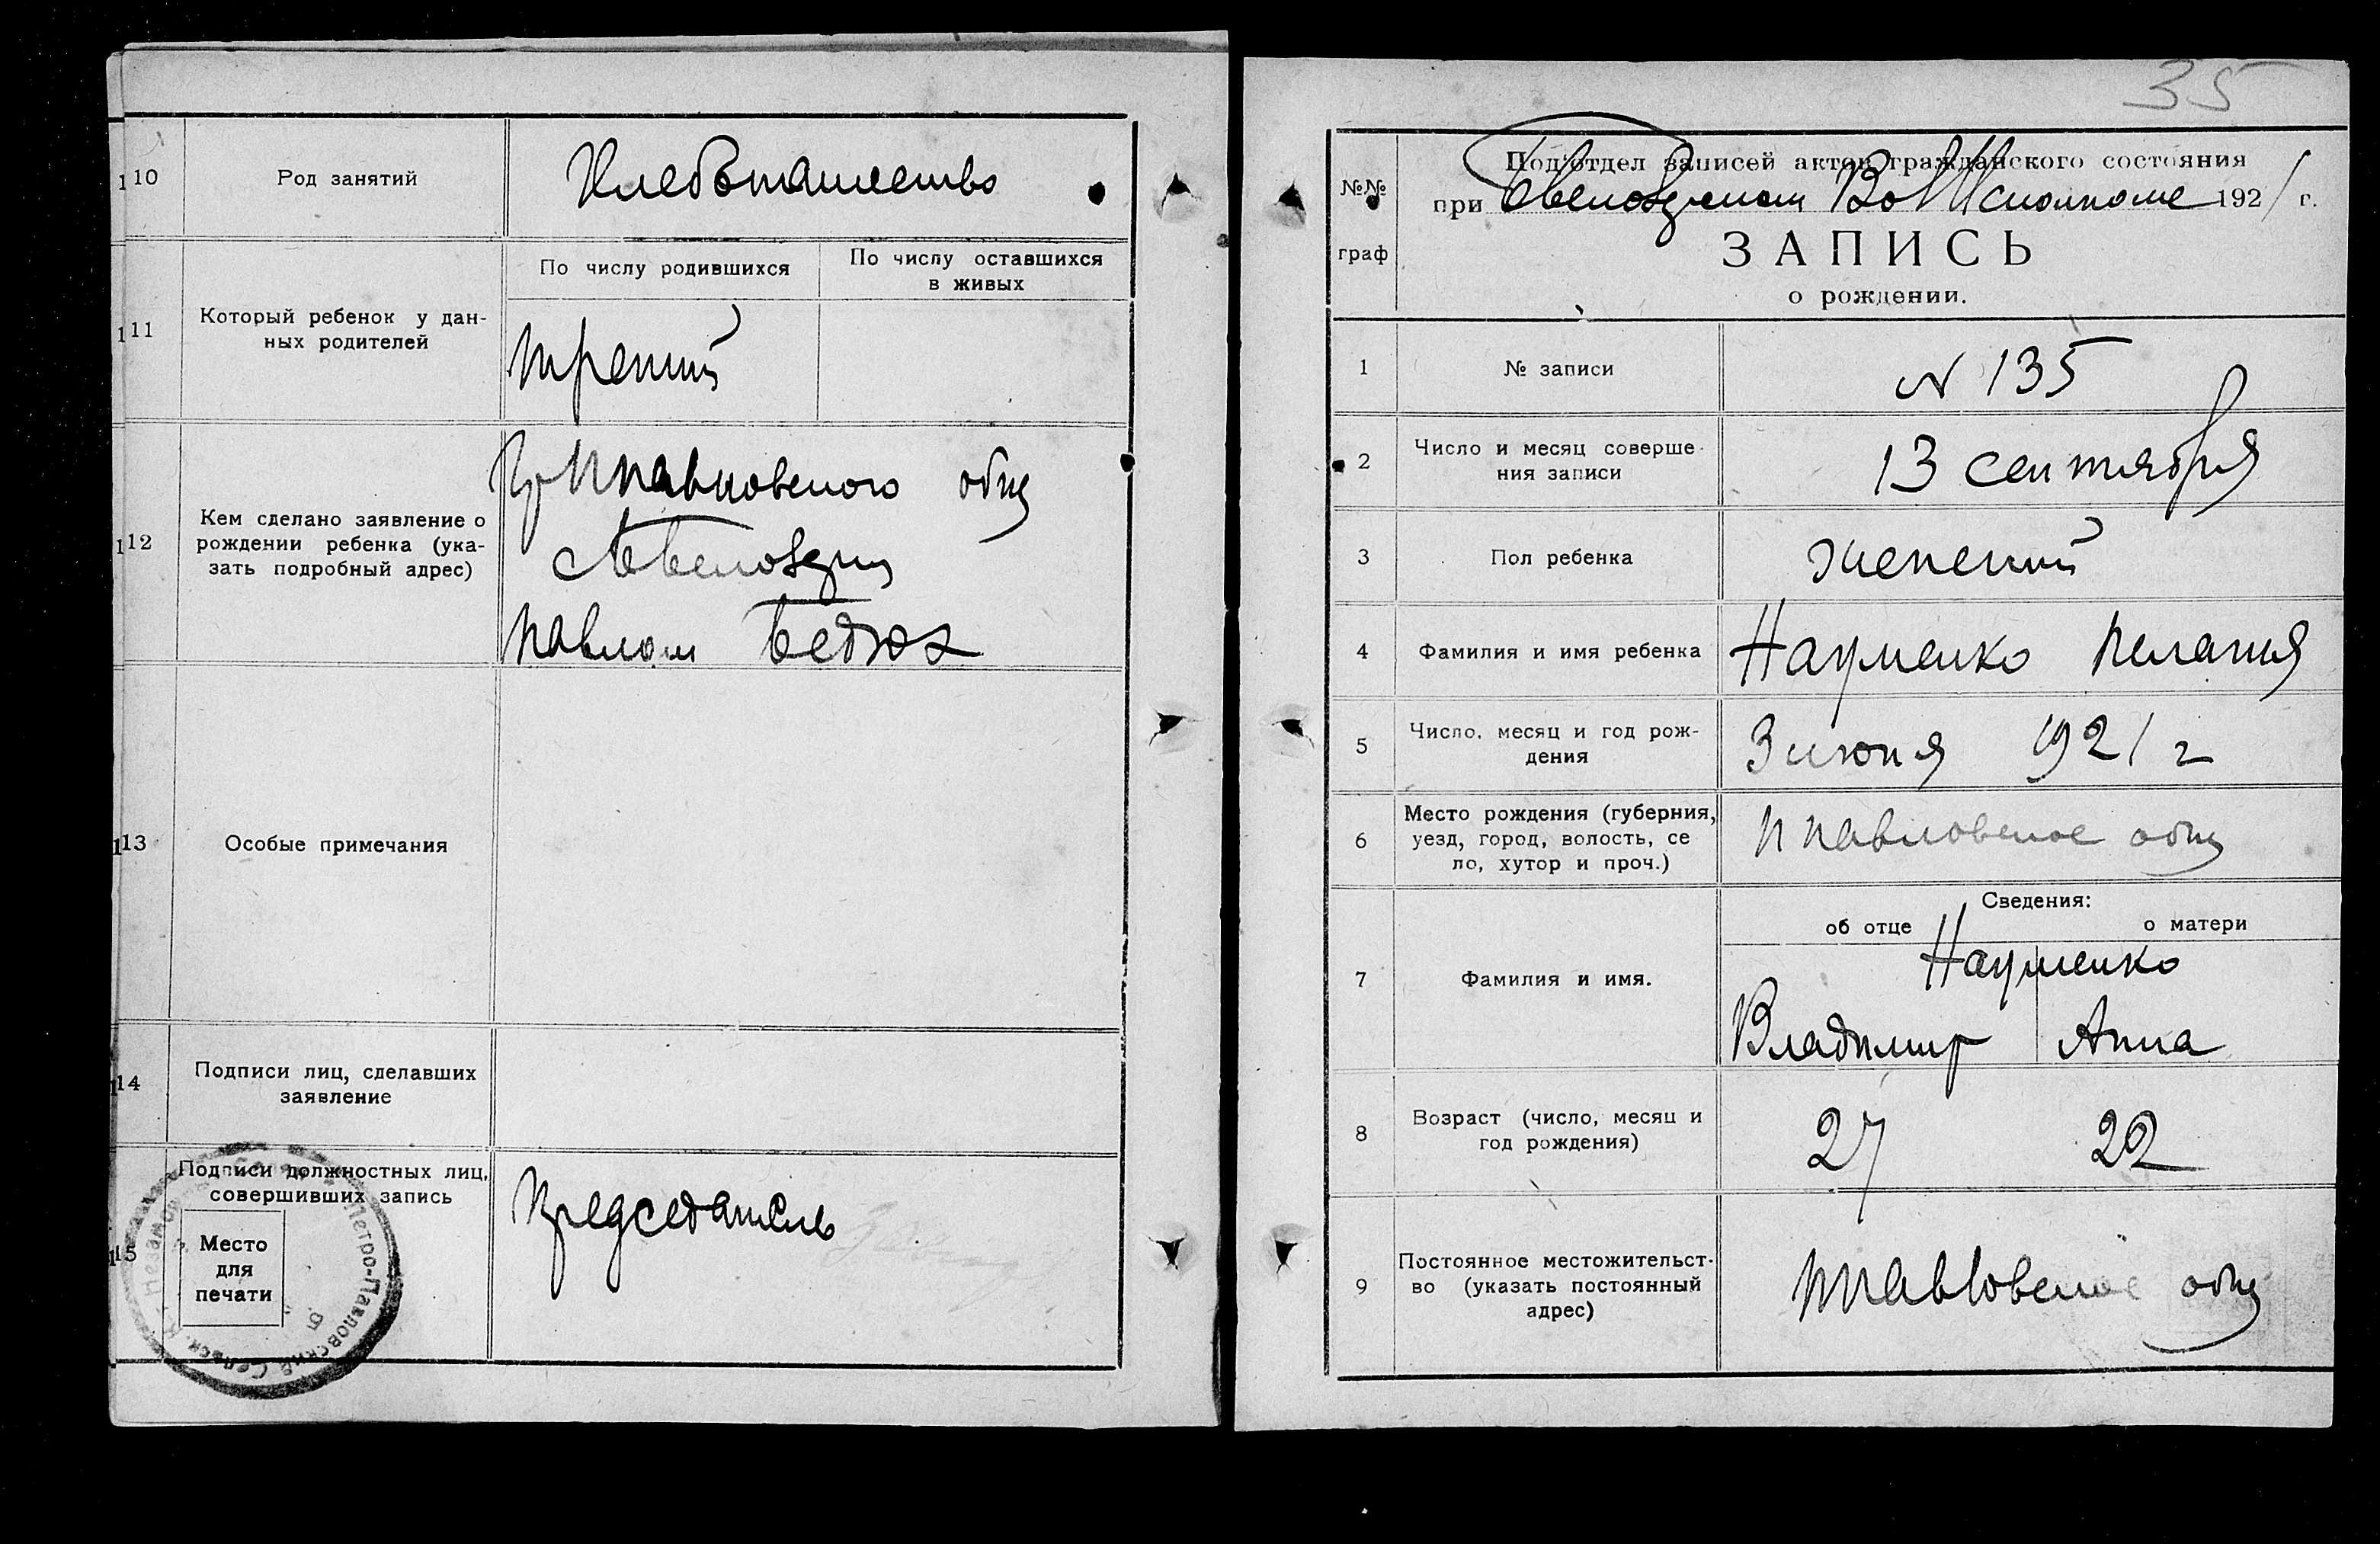 10
Род занятий
Хлебопашество
11
Который ребенок у дан-
ных родителей
По числу родившихся
По числу оставшихся
в живых
третий
12
Кем сделано заявление о
рождении ребенка (ука-
зать подробный адрес)
Пр Ппавловского общ
Павлом
13
Особые примечания
14
Подписи лиц, сделавших
заявление
15
Подписи должностных лиц,
совершивших запись
Место
для
печати
Петро-Павловский Сельск.
Председатель
35
№№
граф
Под'отдел записей актов гражданского состояния
при ВолИсполкоме 1921 г.
ЗАПИСЬ
о рождении.
1
№ записи
N 135
2
Число и месяц соверше-
ния записи
13 сентября
3
Пол ребенка
женский
4
Фамилия и имя ребенка
Науменко Пелагия
5
Число, месяц и год рож-
дения
3 июня 1921 г
6
Место рождения (губерния,
уезд, город, волость, се
ло, хутор и проч.)
П павловское общ
Сведения:
об отце
о матери
7
Фамилия и имя.
Науменко
Владимир Анна
8
Возраст (число, месяц и
год рождения)
27 22
9
Постоянное местожительст-
во (указать постоянный
адрес)
Ппавловское общ